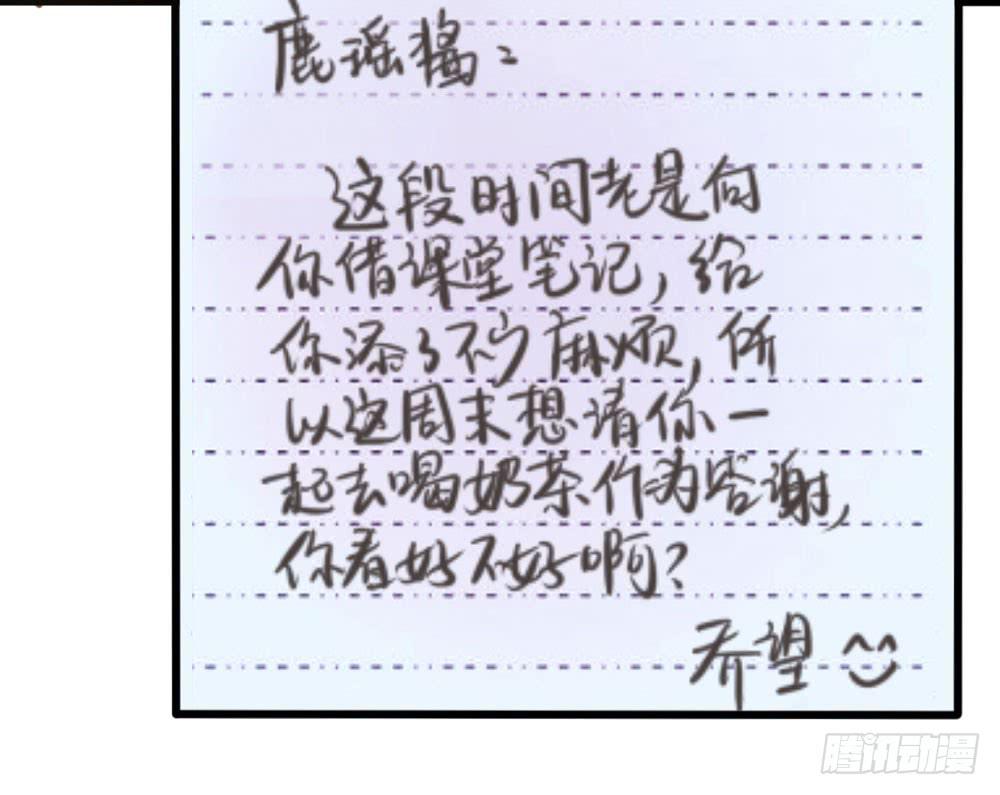 鹿谣酱：
这段时间老是向
你借课堂笔记，给
你添了不少麻烦，所
以这周末想请你一
起去喝奶茶作为答谢，
你看好不好啊？
乔望^^
腾讯动漫